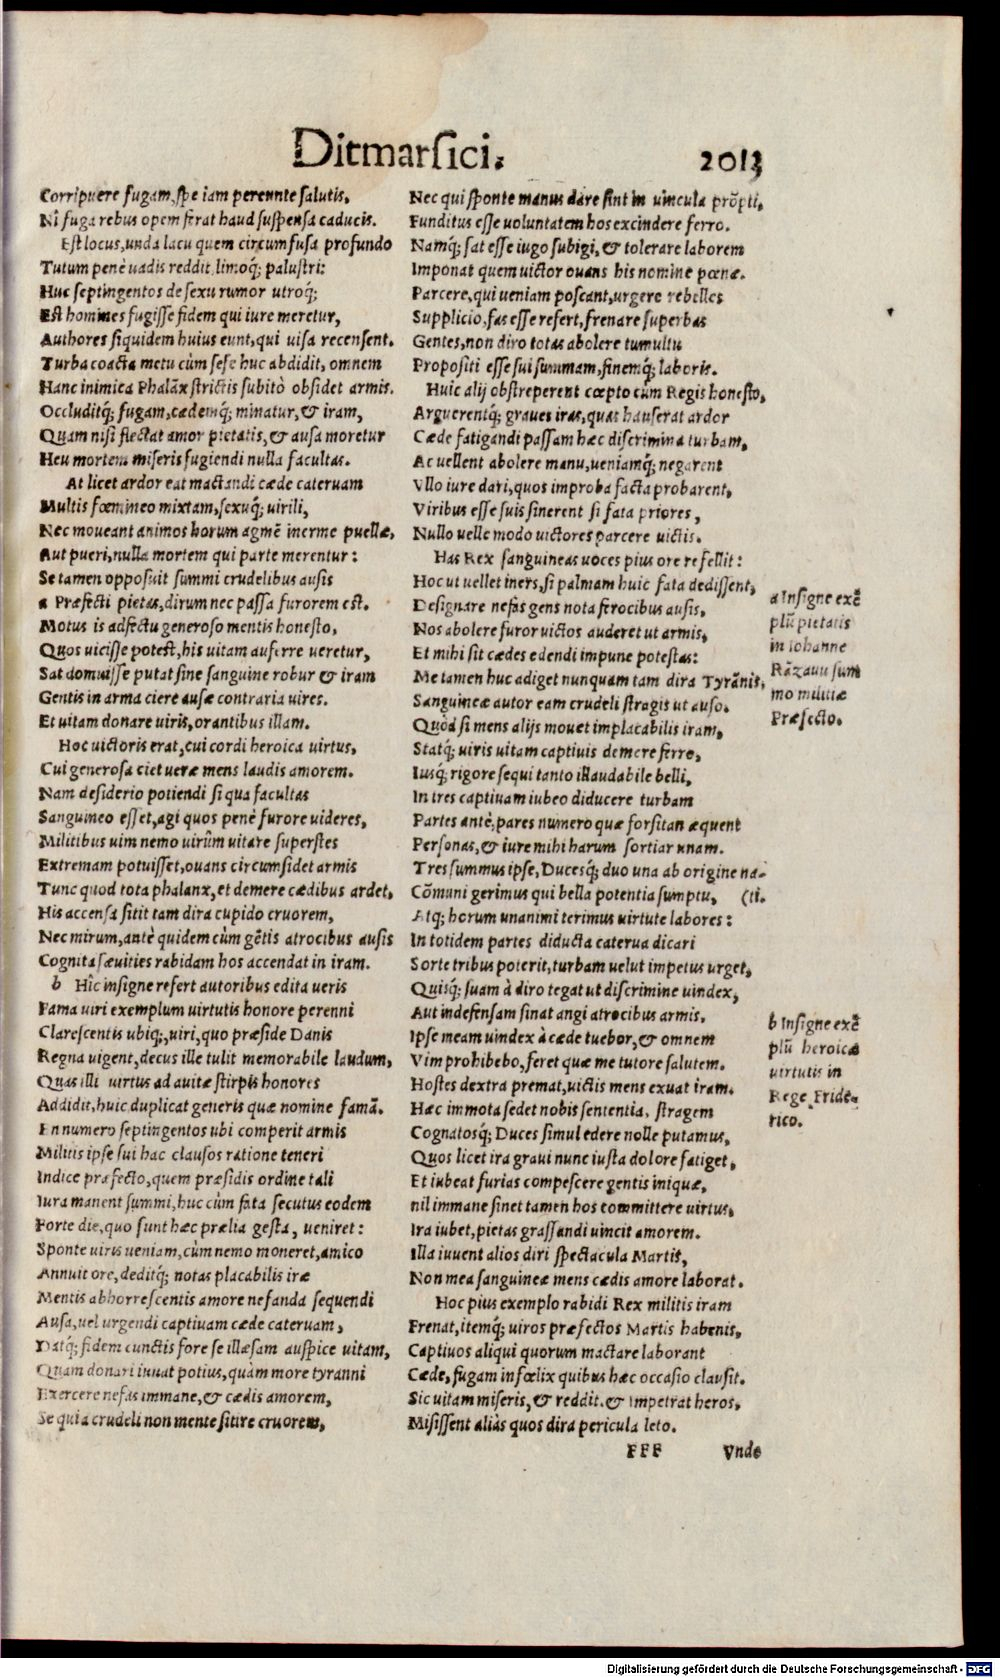 Ditmarsici. 2013
Corripuere fugam, spe iam pereunte salutis.
Ni fuga rebus opem ferat haud suspensa caducis.
Est locus, unda lacu quem circumfusa profundo
Tutum penè uadis reddit, limoq; palustri:
Huc septingentos de sexu rumor utroq;
Est homines fugisse fidem qui iure meretur,
Authores siquidem huius eunt, qui uisa recensent.
Turba coacta metu cùm sese huc abdidit, omnem
Hanc inimica Phalāx strictis subitò obsidet armis.
Occluditq; fugam, cædemq; minatur, & iram,
Quam nisi flectat amor pietatis, & ausa moretur
Heu mortem miseris fugiendi nulla facultas.
At licet ardor eat mactandi cæde cateruam
Multis fœmineo mixtam, sexuq; uirili,
Nec moueant animos horum agmē inerme puellæ,
Aut pueri, nulla mortem qui parte merentur:
Se tamen opposuit summi crudelibus ausis
a Præfecti pietas, dirum nec passa furorem est.
Motus is adfectu generoso mentis honesto,
Quos uicisse potest, his uitam auferre ueretur,
Sat domuisse putat sine sanguine robur & iram
Gentis in arma ciere ausæ contraria uires.
Et uitam donare uiris, orantibus illam.
Hoc uictoris erat, cui cordi heroica uirtus,
Cui generosa ciet ueræ mens laudis amorem.
Nam desiderio potiendi si qua facultas
Sanguineo esset, agi quos penè furore uideres,
Militibus uim nemo uirûm uitare superstes
Extremam potuisset, ouans circumsidet armis
Tunc quod tota phalanx, et demere cædibus ardet,
His accensa sitit tam dira cupido cruorem,
Nec mirum, antè quidem cùm gētis atrocibus ausis
Cognita sæuities rabidam hos accendat in iram.
b Hîc insigne refert autoribus edita ueris
Fama uiri exemplum uirtutis honore perenni
Clarescentis ubiq;, uiri, quo præside Danis
Regna uigent, decus ille tulit memorabile laudum,
Quas illi uirtus ad auitæ stirpis honores
Addidit, huic duplicat generis quæ nomine famā.
En numero septingentos ubi comperit armis
Militis ipse sui hac clausos ratione teneri
Indice præfecto, quem præsidis ordine tali
Iura manent summi, huc cùm fata secutus eodem
Forte die, quo sunt hæc prælia gesta, ueniret:
Sponte uiris ueniam, cùm nemo moneret, amico
Annuit ore, deditq; notas placabilis iræ
Mentis abhorrescentis amore nefanda sequendi
Ausa, uel urgendi captiuam cæde cateruam,
Datq; fidem cunctis fore se illæsam auspice uitam,
Quam donari iuuat potius, quàm more tyranni
Exercere nefas immane, & cædis amorem,
Se quia crudeli non mente sitire cruorem,
Nec qui sponte manus dare sint in uincula prōpti,
Funditus esse uoluntatem hos excindere ferro.
Namq; sat esse iugo subigi, & tolerare laborem
Imponat quem uictor ouans his nomine pœnæ.
Parcere, qui ueniam poscant, urgere rebelles
Supplicio, fas esse refert, frenare superbas
Gentes, non diro totas abolere tumultu
Propositi esse sui summam, finemq; laboris.
Huic alij obstreperent cœpto cùm Regis honesto,
Arguerentq; graues iras, quas hauserat ardor
Cæde fatigandi passam hæc discrimina turbam,
Ac uellent abolere manu, ueniamq; negarent
Vllo iure dari, quos improba facta probarent,
Viribus esse suis sinerent si fata priores,
Nullo uelle modo uictores parcere uictis.
Has Rex sanguineas uoces pius ore refellit:
Hoc ut uellet iners, si palmam huic fata dedissent,
Designare nefas gens nota ferocibus ausis,
Nos abolere furor uictos auderet ut armis,
Et mihi sit cædes edendi impune potestas:
Me tamen huc adiget nunquam tam dira Tyrānis,
Sanguineæ autor eam crudeli stragis ut auso.
Quòd si mens alijs mouet implacabilis iram,
Statq; uiris uitam captiuis demere ferre,
Iusq; rigore sequi tanto illaudabile belli,
In tres captiuam iubeo diducere turbam
Partes antè, pares numero quæ forsitan æquent
Personas, & iure mihi harum sortiar unam.
Tres summus ipse, Ducesq; duo una ab origine na-
Cōmuni gerimus qui bella potentia sumptu, (ti.
Atq; horum unanimi terimus uirtute labores:
In totidem partes diducta caterua dicari
Sorte tribus poterit, turbam uelut impetus urget,
Quisq; suam à diro tegat ut discrimine uindex,
Aut indefensam sinat angi atrocibus armis.
Ipse meam uindex à cæde tuebor, & omnem
Vim prohibebo, feret quæ me tutore salutem.
Hostes dextra premat, uictis mens exuat iram.
Hæc immota sedet nobis sententia, stragem
Cognatosq; Duces simul edere nolle putamus,
Quos licet ira graui nunc iusta dolore fatiget,
Et iubeat furias compescere gentis iniquæ,
nil immane sinet tamen hos committere uirtus,
Ira iubet, pietas grassandi uincit amorem.
Illa iuuent alios diri spectacula Martis,
Non mea sanguineæ mens cædis amore laborat.
Hoc pius exemplo rabidi Rex militis iram
Frenat, itemq; uiros præfectos Martis habenis,
Captiuos aliqui quorum mactare laborant
Cæde, fugam infœlix quibus hæc occasio clausit.
Sic uitam miseris, & reddit, & impetrat heros,
Misissent aliàs quos dira pericula leto.
FFF Vnde
a Insigne exē
plū pietatis
in Iohanne
Rāzauu sum
mo militiæ
Præfecto.
b Insigne exē
plū heroicæ
uirtutis in
Rege Fride-
rico.
Digitalisierung gefördert durch die Deutsche Forschungsgemeinschaft - DFG